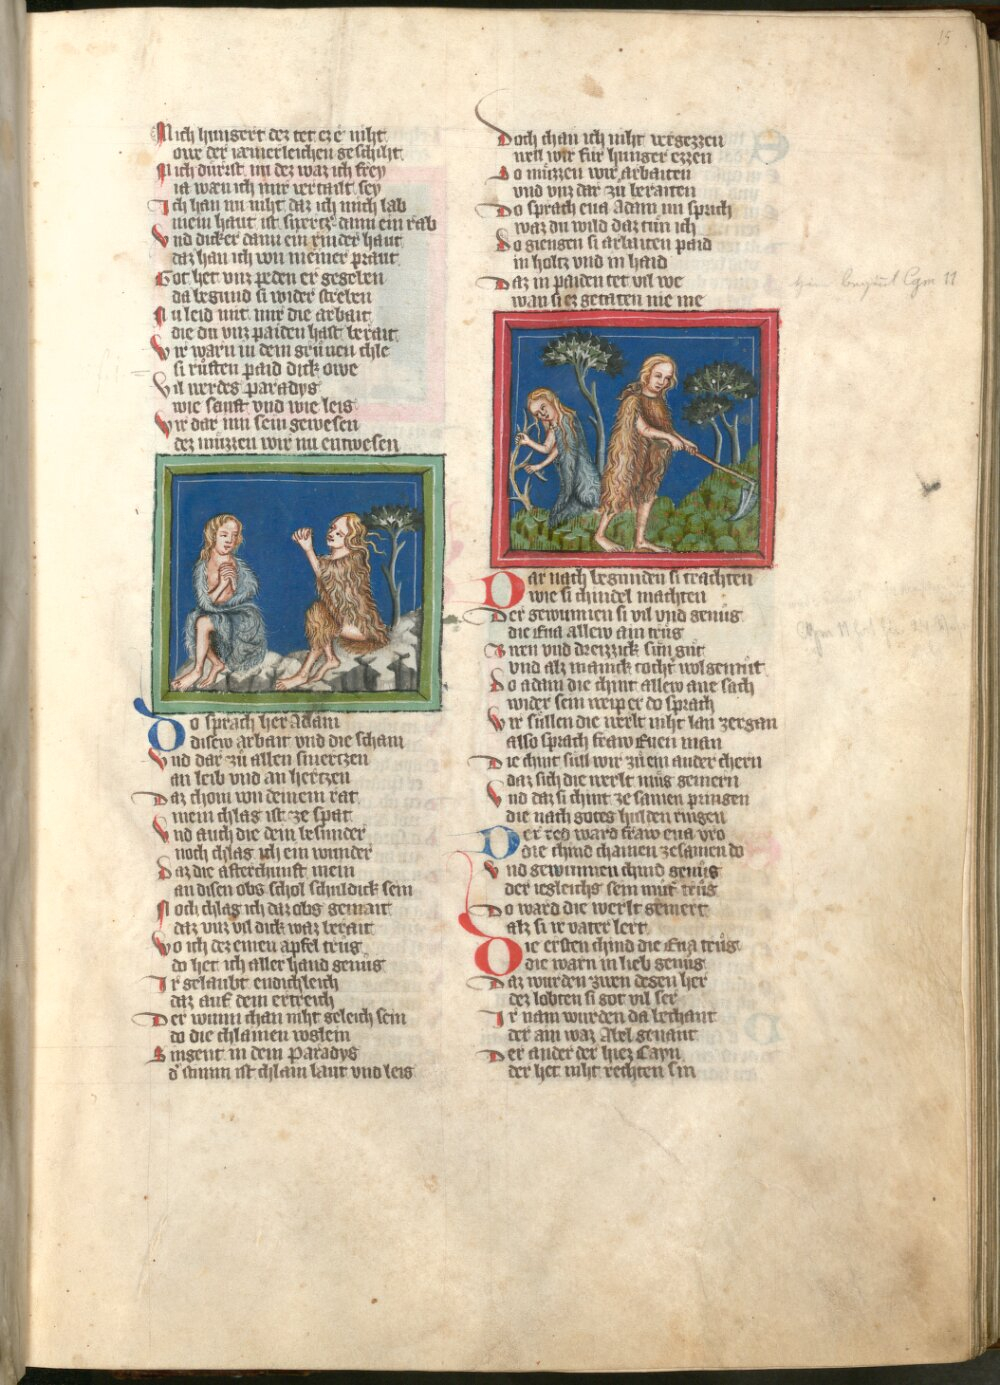 15
Mich hungert dez tet ez e niht
owe der iæmerleichen geschiht
Mich dürst nu dez waz ich frey
ia wæn ich mir vertailt sey
Ich han nu niht daz ich mich lab
mein haut ist swertzer dann ein rab
Vnd dicker dann ein rinder haut
daz han ich von meiner praut
Got het vnz peden er gegeben
da begund si wider streben
Nu leid mit mir die arbait
die du vnz paiden hast berait
Wir warn in dem grünen chle
si rüften paid dick owe
Vil werdes paradys
wie sanft vnd wie leis
Wir dar inn sein gewesen
dez müzzen wir nu entwesen
Do sprach her Adam
disew arbait vnd die scham
Vnd dar zů allen smertzen
an leib vnd an hertzen
Daz chom von deinem rat
mein chlag ist ze spat
Vnd auch die dein besunder
noch chlag ich ein wunder
Daz die afterchunft mein
an disen obs schol schuldick sein
Noch chlag ich daz obs gemait
daz vnz vil dick waz berait
Wo ich dez einen apfel trůg
do het ich aller hand genůg
Ir gelaubt endichleich
daz auf dem ertreich
Der wunn chan niht geleich sein
do die chlainen voglein
Singent in dem Paradys
d stimm ist chlain laut vnd leis
Doch chan ich niht vergezzen
well wir für hunger ezzen
So müzzen wir arbaiten
vnd vnz dar zu beraiten
Do sprach eua Adam nu sprich
waz du wild daz tun ich
So giengen si arbaiten paid
in holtz vnd in haid
Daz in paiden tet vil we
wan si ez getaten nie me
Dar nach begunden si trachten
wie si chindel machten
Der gewunnen si vil vnd genůg
die Eua allew ain trůg
Ainen vnd dreizzick sün gůt
vnd alz manick tocht wolgemůt
Do adam die chint allew ane sach
wider sein weip er do sprach
Wir süllen die werlt niht lan zergan
also sprach fraw Euen man
Die chint süll wir zů ein ander chern
daz sich die werlt můg gemern
Vnd daz si chint ze samen pringen
die nach gotes hulden ringen
Der red ward fraw eua vro
die chind chamen zesamen do
Vnd gewunnen chind genůg
der iegleichs sein můt trůg
Do ward die werlt gemert
alz si ir vater lert
Die ersten chind die Eua trůg
die warn in lieb genůg
Daz wurden zwen degen her
dez lobten si got vil ser
Ir nam wurden da bechant
der ain waz Abel genant
Der ander der hiez Cayn
der het niht rechten sin
Cgm 11